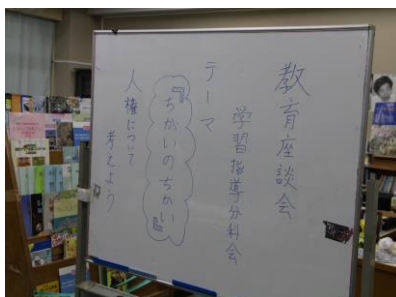 教育座談会
学習指導分科会
テーマ
『ちがいのちがい』
人権について
考えよう